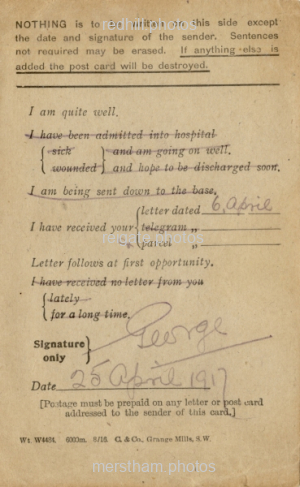 NOTHING is to be written on this side except
the date and signature of the sender. Sentences
not required may be erased. If anything else is
added the post card will be destroyed.
I am quite well.
I have been admitted into hospital
sick and am going on well.
wounded and hope to be discharged soon.
I am being sent down to the base.
letter dated 6, April
I have received your telegram „
parcel „
Letter follows at first opportunity.
I have received no letter from you
lately
for a long time.
George
Signature
only
Date 25 April 1917
[Postage must be prepaid on any letter or post card
addressed to the sender of this card.]
Wt. W4494. 8/16. C. & Co., Grange Mills, S.W.
redhill photos
reigate photos
merstham photos